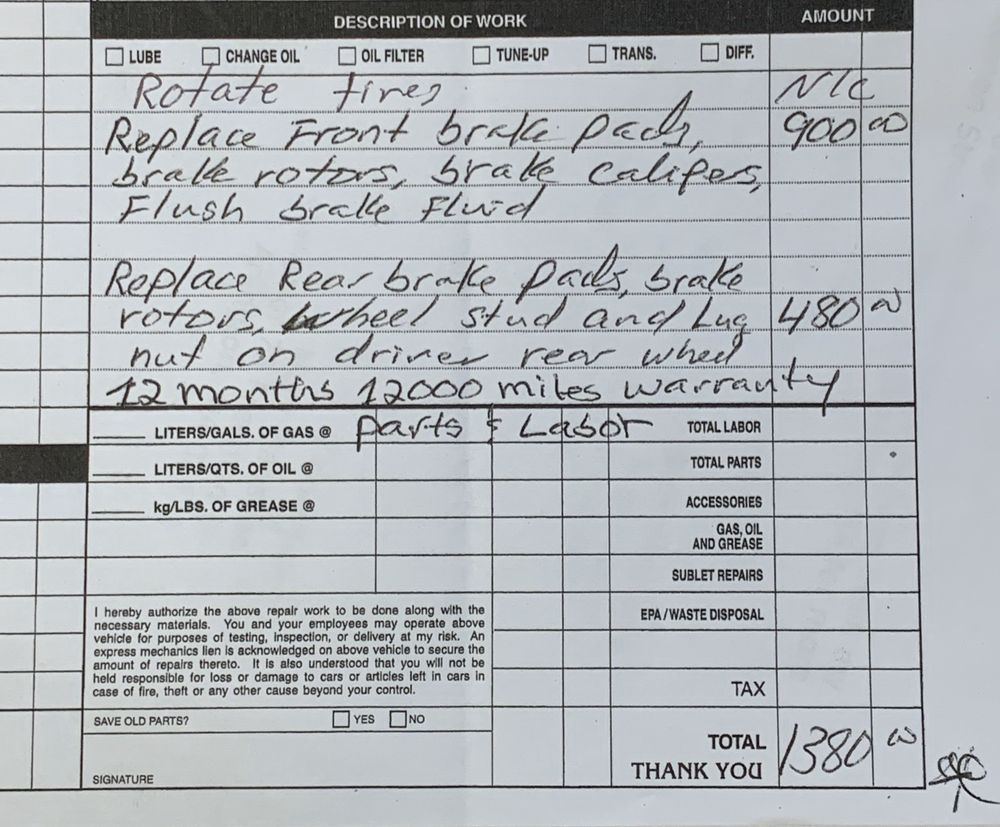 DESCRIPTION OF WORK AMOUNT
LUBE CHANGE OIL OIL FILTER TUNE-UP TRANS. DIFF.
Rotate tires N/C
Replace Front brake pads, 900 00
brake rotors, brake calipes,
Flush brake Fluid
Replace Rear brake pads, brake
rotors, wheel stud and Lug 480 00
nut on driver rear wheel
12 months 12000 miles warranty
LITERS/GALS. OF GAS @ parts & Labor TOTAL LABOR
LITERS/QTS. OF OIL @ TOTAL PARTS
kg/LBS. OF GREASE @ ACCESSORIES
GAS, OIL
AND GREASE
SUBLET REPAIRS
EPA / WASTE DISPOSAL
I hereby authorize the above repair work to be done along with the
necessary materials. You and your employees may operate above
vehicle for purposes of testing, inspection, or delivery at my risk. An
express mechanics lien is acknowledged on above vehicle to secure the
amount of repairs thereto. It is also understood that you will not be
held responsible for loss or damage to cars or articles left in cars in
case of fire, theft or any other cause beyond your control.
TAX
SAVE OLD PARTS? YES NO
TOTAL 1380 00
THANK YOU
SIGNATURE